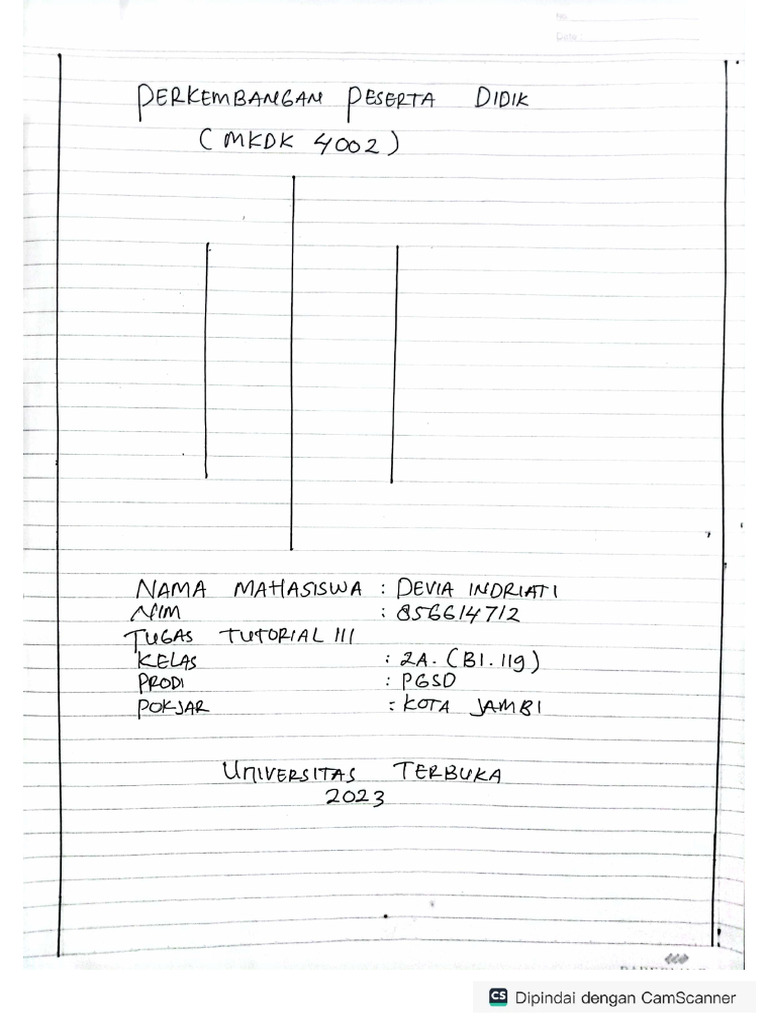 No.
Date:
PERKEMBANGAN PESERTA DIDIK
(MKDK 4002)
NAMA MAHASISWA : DEVIA INDRIATI
NIM : 856614712
TUGAS TUTORIAL III
KELAS : 2A. (BI. 119)
PRODI : PGSD
POKJAR : KOTA JAMBI
UNIVERSITAS TERBUKA
2023
CS Dipindai dengan CamScanner